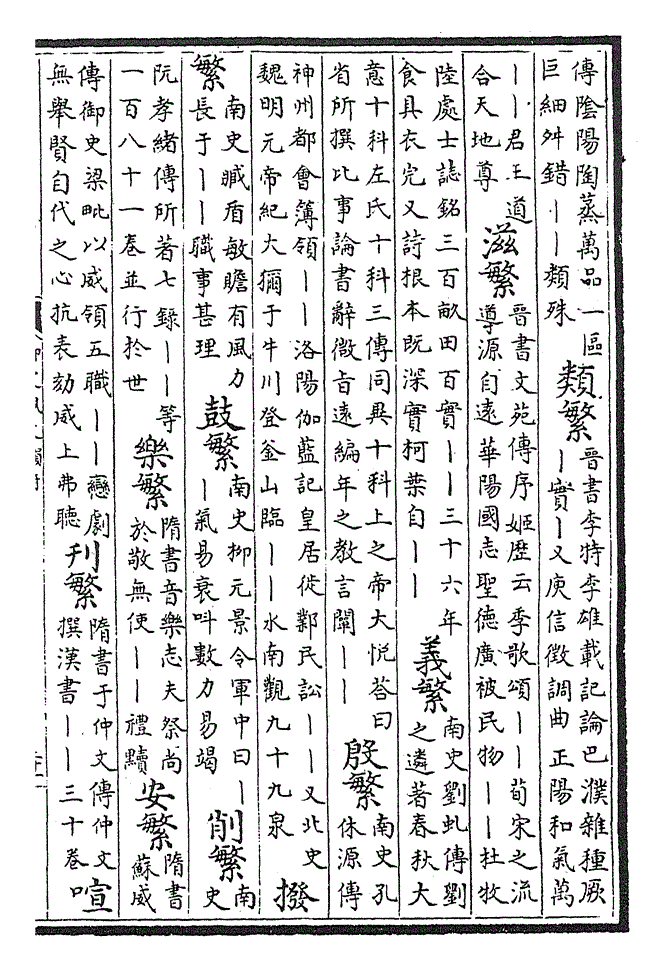 傳陰陽陶蒸萬品一區
巨細舛錯丨丨類殊
類繁
晉書李特李雄載記論巴濮雜種厥
丨實丨又庾信徵調曲正陽和氣萬
丨丨君王道
合天地尊
滋繁
晉書文苑傳序姬歷云季歌頌丨丨荀宋之流
導源自遠華陽國志聖德廣被民物丨丨杜牧
陸處士誌銘三百畝田百實丨丨三十六年
食具衣完又詩根本既深實柯葉自丨丨
義繁
南史劉虬傳劉
之遴著春秋大
意十科左氏十科三傳同異十科上之帝大悅荅曰
省所撰比事論書辭微旨遠編年之教言闡丨丨
殷繁
南史孔
休源傳
神州都會簿領丨丨洛陽伽藍記皇居徙鄴民訟丨丨又北史
魏明元帝紀大獮于牛川登釜山臨丨丨水南觀九十九泉
撥
繁
南史臧盾敏贍有風力
長于丨丨職事甚理
鼓繁
南史柳元景令軍中曰丨
丨氣易衰叫數力易竭
削繁
南
史
阮孝緒傳所著七錄丨丨等
一百八十一卷並行於世
樂繁
隋書音樂志夫祭尚
於敬無使丨丨禮黷
安繁
隋書
蘇威
傳御史梁毗以威領五職丨丨戀劇
無舉賢自代之心抗表劾威上弗聽
刊繁
隋書于仲文傳仲文
撰漢書丨丨三十卷
喧